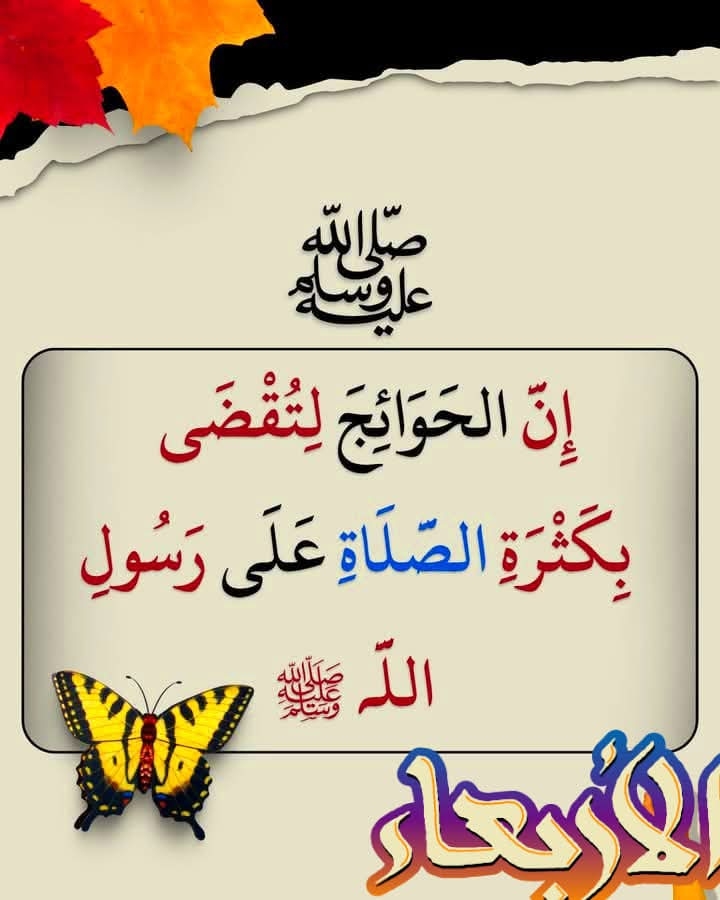 صلى الله عليه وسلم
إِنّ الحَوَائِجَ لِتُقْضَى
بِكَثْرَةِ الصّلَاةِ عَلَى رَسُولِ
اللّه ﷺ
الأربعاء